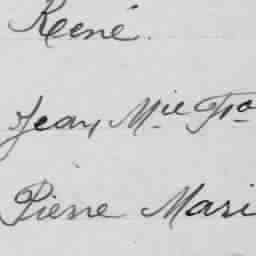 Reené.
Jean Mie Fço
Pierre Mari